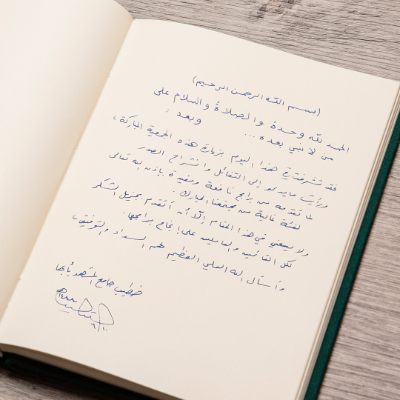 (بسم الله الرحمن الرحيم)
الحمد لله وحدة والصلاة والسلام على
من لا نبي بعده ... وبعد :
فقد تشرفت في هذا اليوم بزيارة هذه الجمعية المباركة ،
ورأيت ما يدعو إلى التفائل وانشراح الصدر
لما تقدمه من برامج نافعة ومفيدة بإذن الله تعالى
لفئة غالية من مجتمعنا المبارك .
ولا يسعني في هذا المقام إلا أن أتقدم بجزيل الشكر
لكل القائمين والعاملين على إنجاح برامجها .
وأسأل الله العلي العظيم لهم السداد والتوفيق ،
خطيب جامع